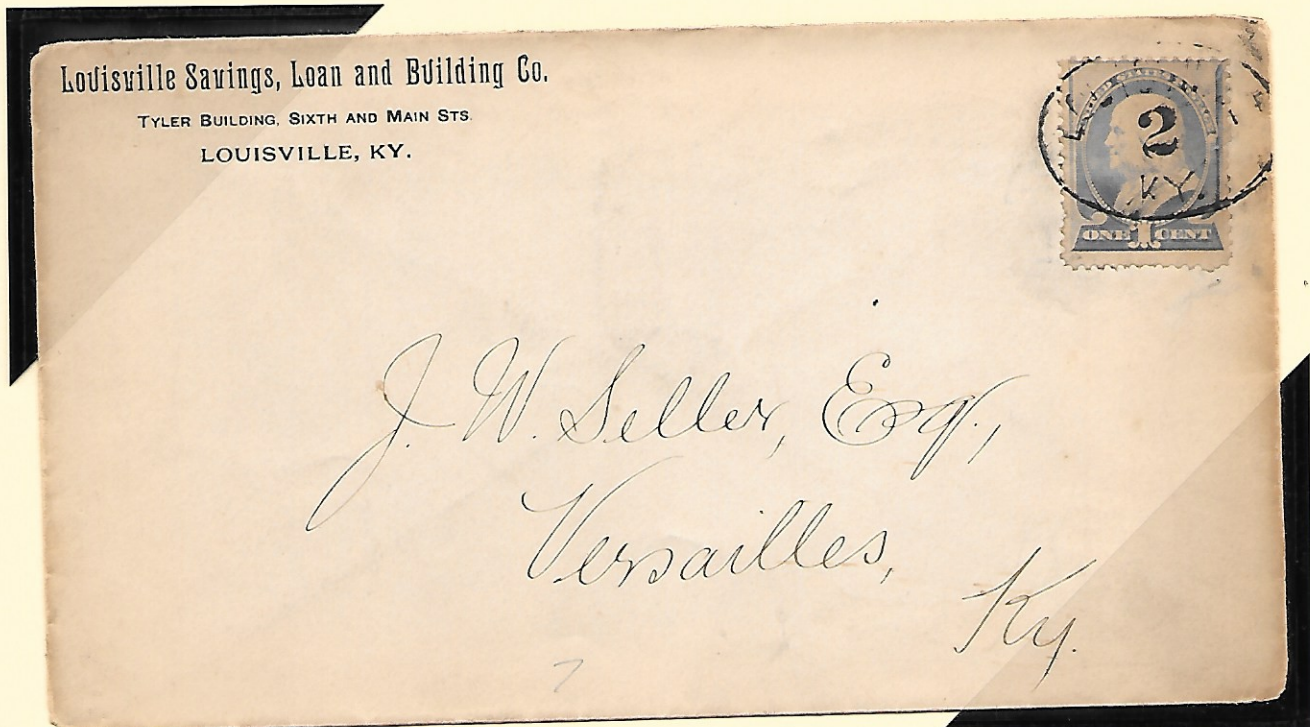 Louisville Savings, Loan and Building Co.
Tyler Building, Sixth and Main Sts.
LOUISVILLE, KY.
UNITED STATES POSTAGE
2
KY.
ONE 1 CENT
J. W. Seller, Esq.,
Versailles,
Ky.